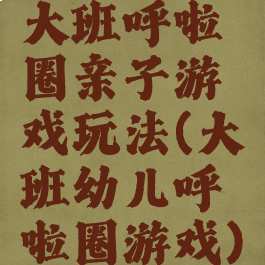 大班呼啦
圈亲子游
戏玩法(大
班幼儿呼
啦圈游戏)